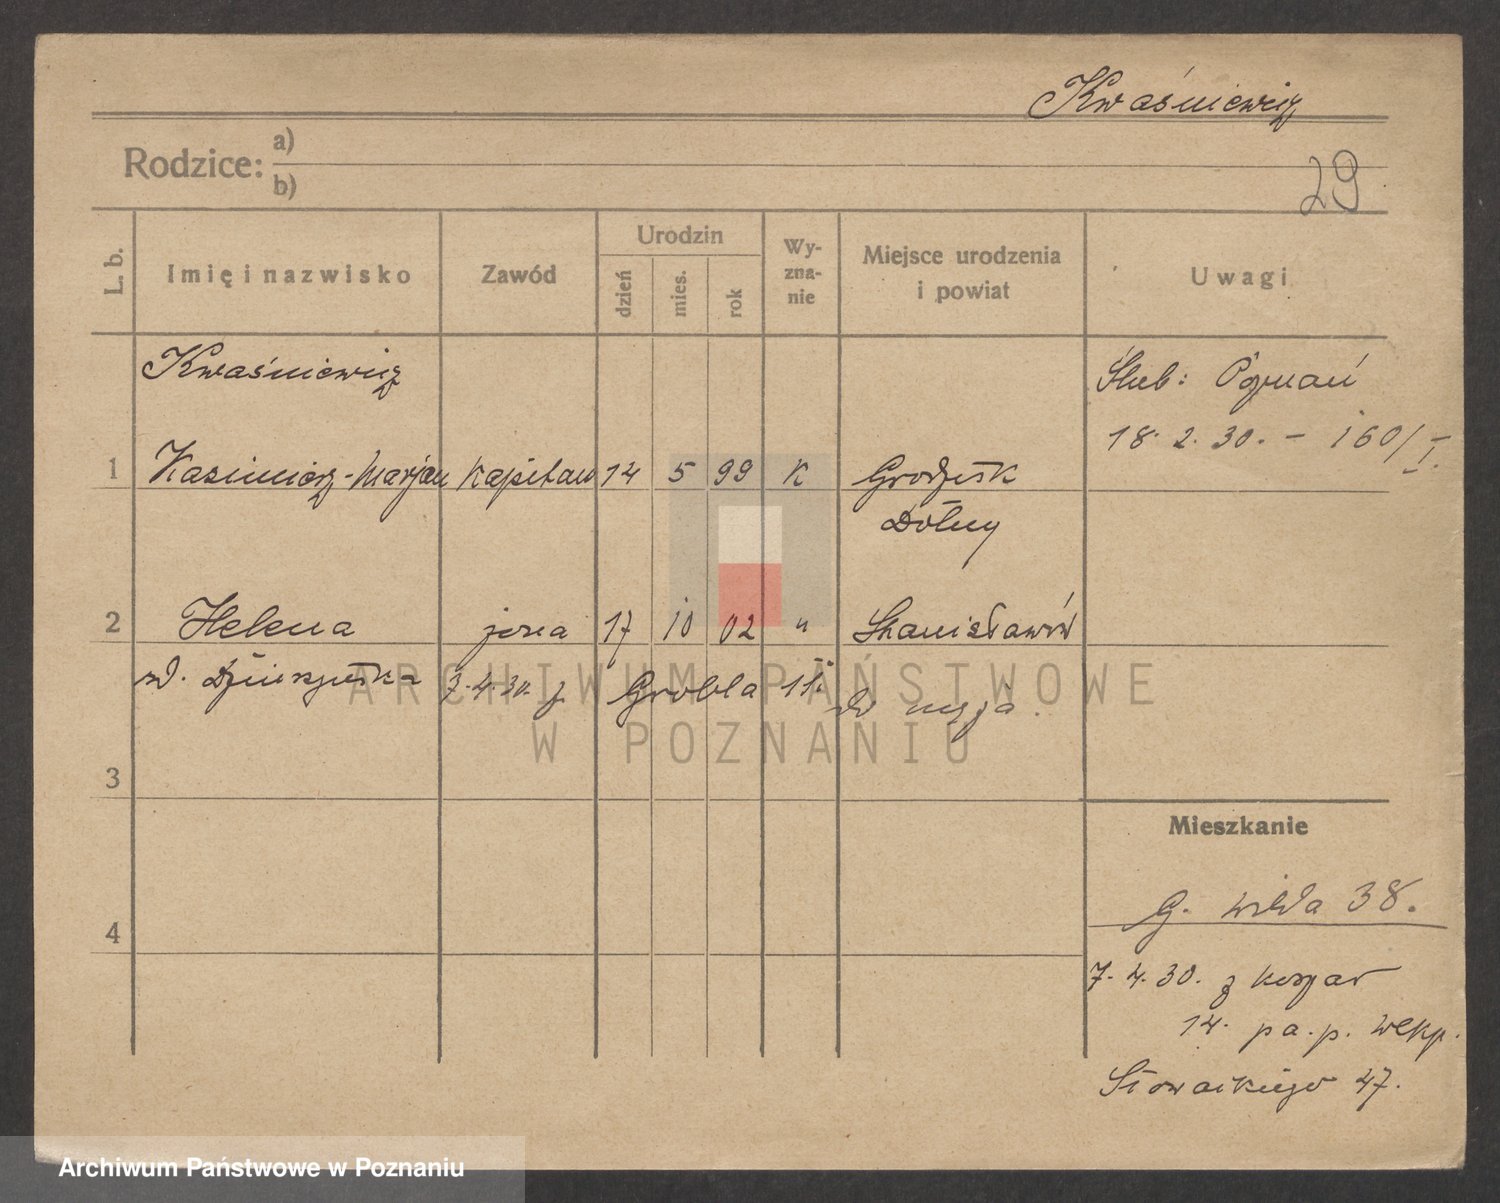 Kwaśniewicz
Rodzice:
a)
b)
29
L. b.
Imię i nazwisko
Zawód
Urodzin
dzień
mies.
rok
Wy-
zna-
nie
Miejsce urodzenia
i powiat
Uwagi
Kwaśniewicz
Ślub: Poznań
18. 2. 30. - 160/I.
1 Kazimierz-Marjan kapitan 14 5 99 K Grodzisk
Dolny
2 Helena żona 17 10 02 " Stanisławów
7.4.30. z Grobla
ARCHIWUM PAŃSTWOWE
W POZNANIU
3
Mieszkanie
G. Wilda 38.
4
7. 4. 30. z koszar
14. p a. p.
Słowackiego 47.
Archiwum Państwowe w Poznaniu